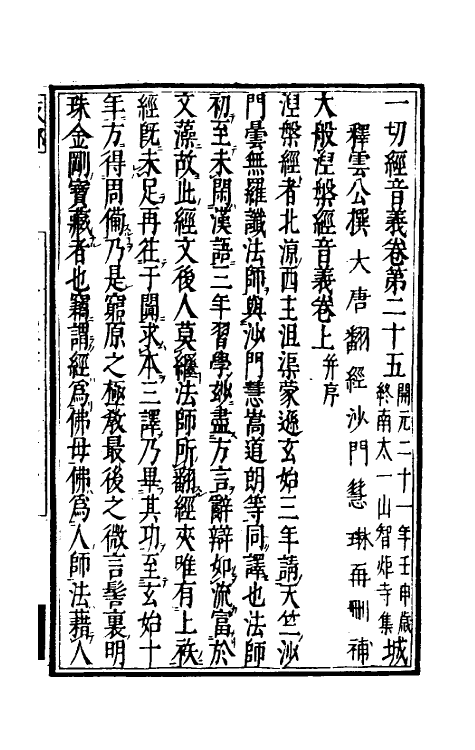 一切經音義卷第二十五 開元二十一年壬申歲終南太一山智炬寺集 城
釋雲公撰 大唐翻經沙門慧琳再刪補
大般涅槃經音義卷上并序
涅槃經者北涼西主沮渠蒙遜玄始三年請天竺沙
門曇無羅讖法師與沙門慧嵩道朗等同譯也法師
初至未閑漢語三年習學妙盡方言辭辯如流富於
文藻故此經文後人莫繼法師所翻經夾唯有上袟
經既未足再往于闐求本三譯乃畢其功至玄始十
年方得周備乃是窮原之極教最後之微言髻裏明
珠金剛寶藏者也竊謂經為佛母佛為人師法藉人